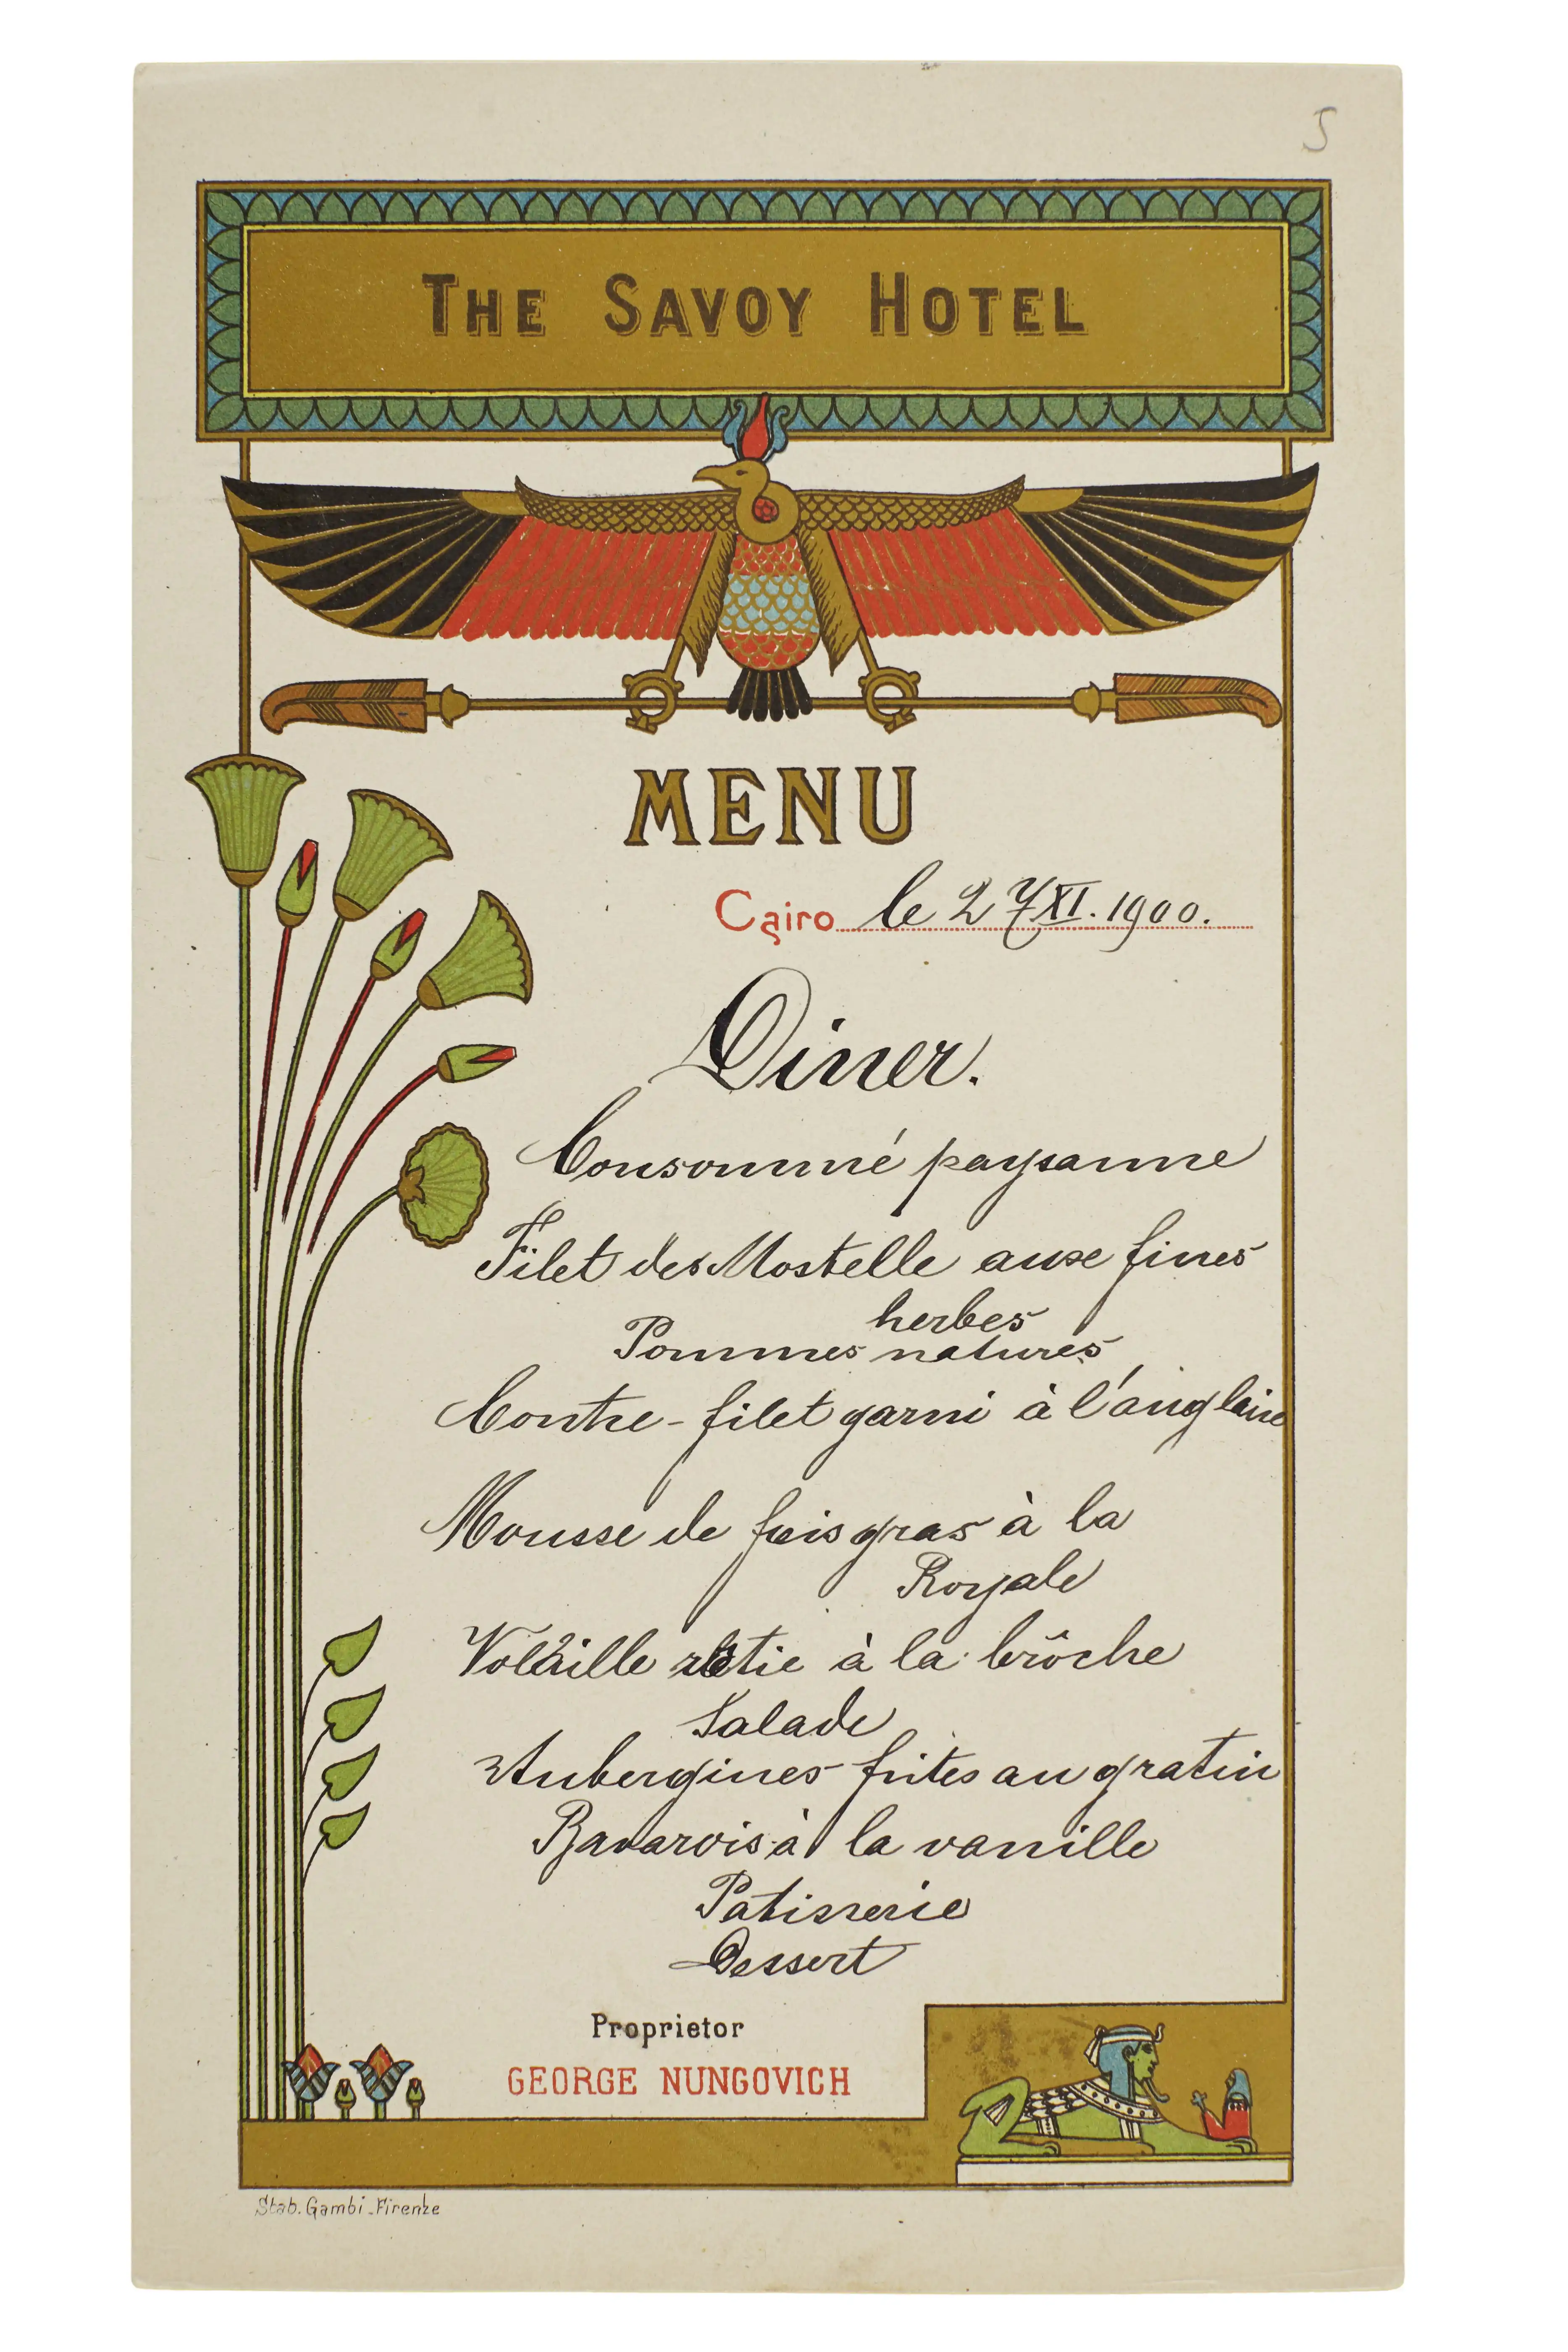 5
THE SAVOY HOTEL
MENU
Cairo le 27 XI. 1900.
Diner.
Consommé paysanne
Filet des Mostelle aux fines
herbes
Pommes natures
Contre-filet garni à l'anglaise
Mousse de fois gras à la
Royale
Volaille rôtie à la brôche
Salade
Aubergines frites au gratin
Bavarois à la vanille
Patisserie
Dessert
Proprietor
GEORGE NUNGOVICH
Stab. Gambi - Firenze